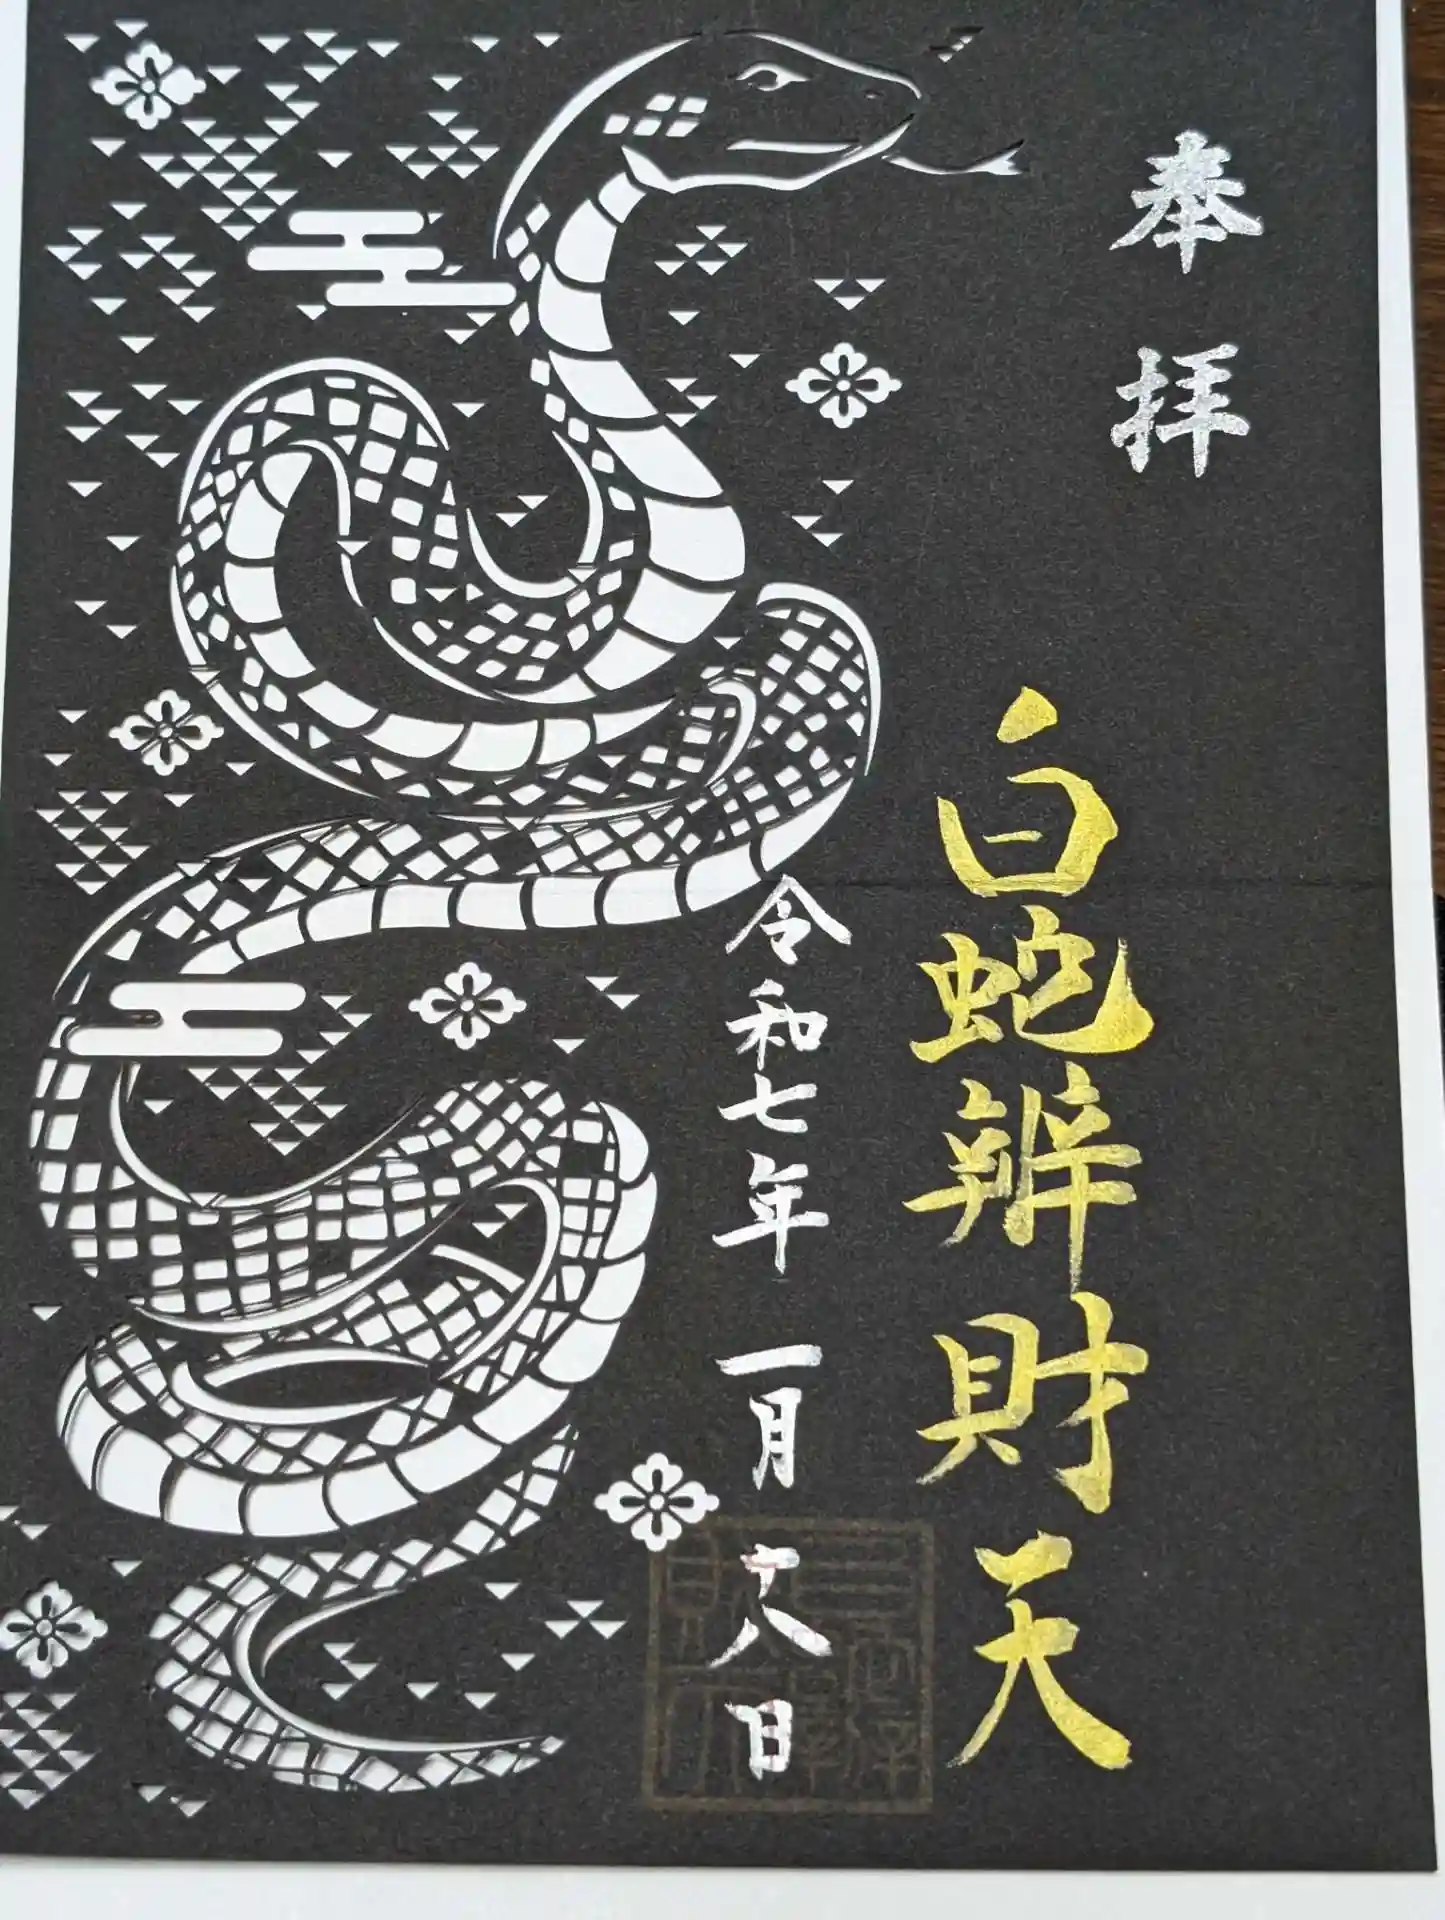 奉拝
白蛇辨財天
令和七年一月六日